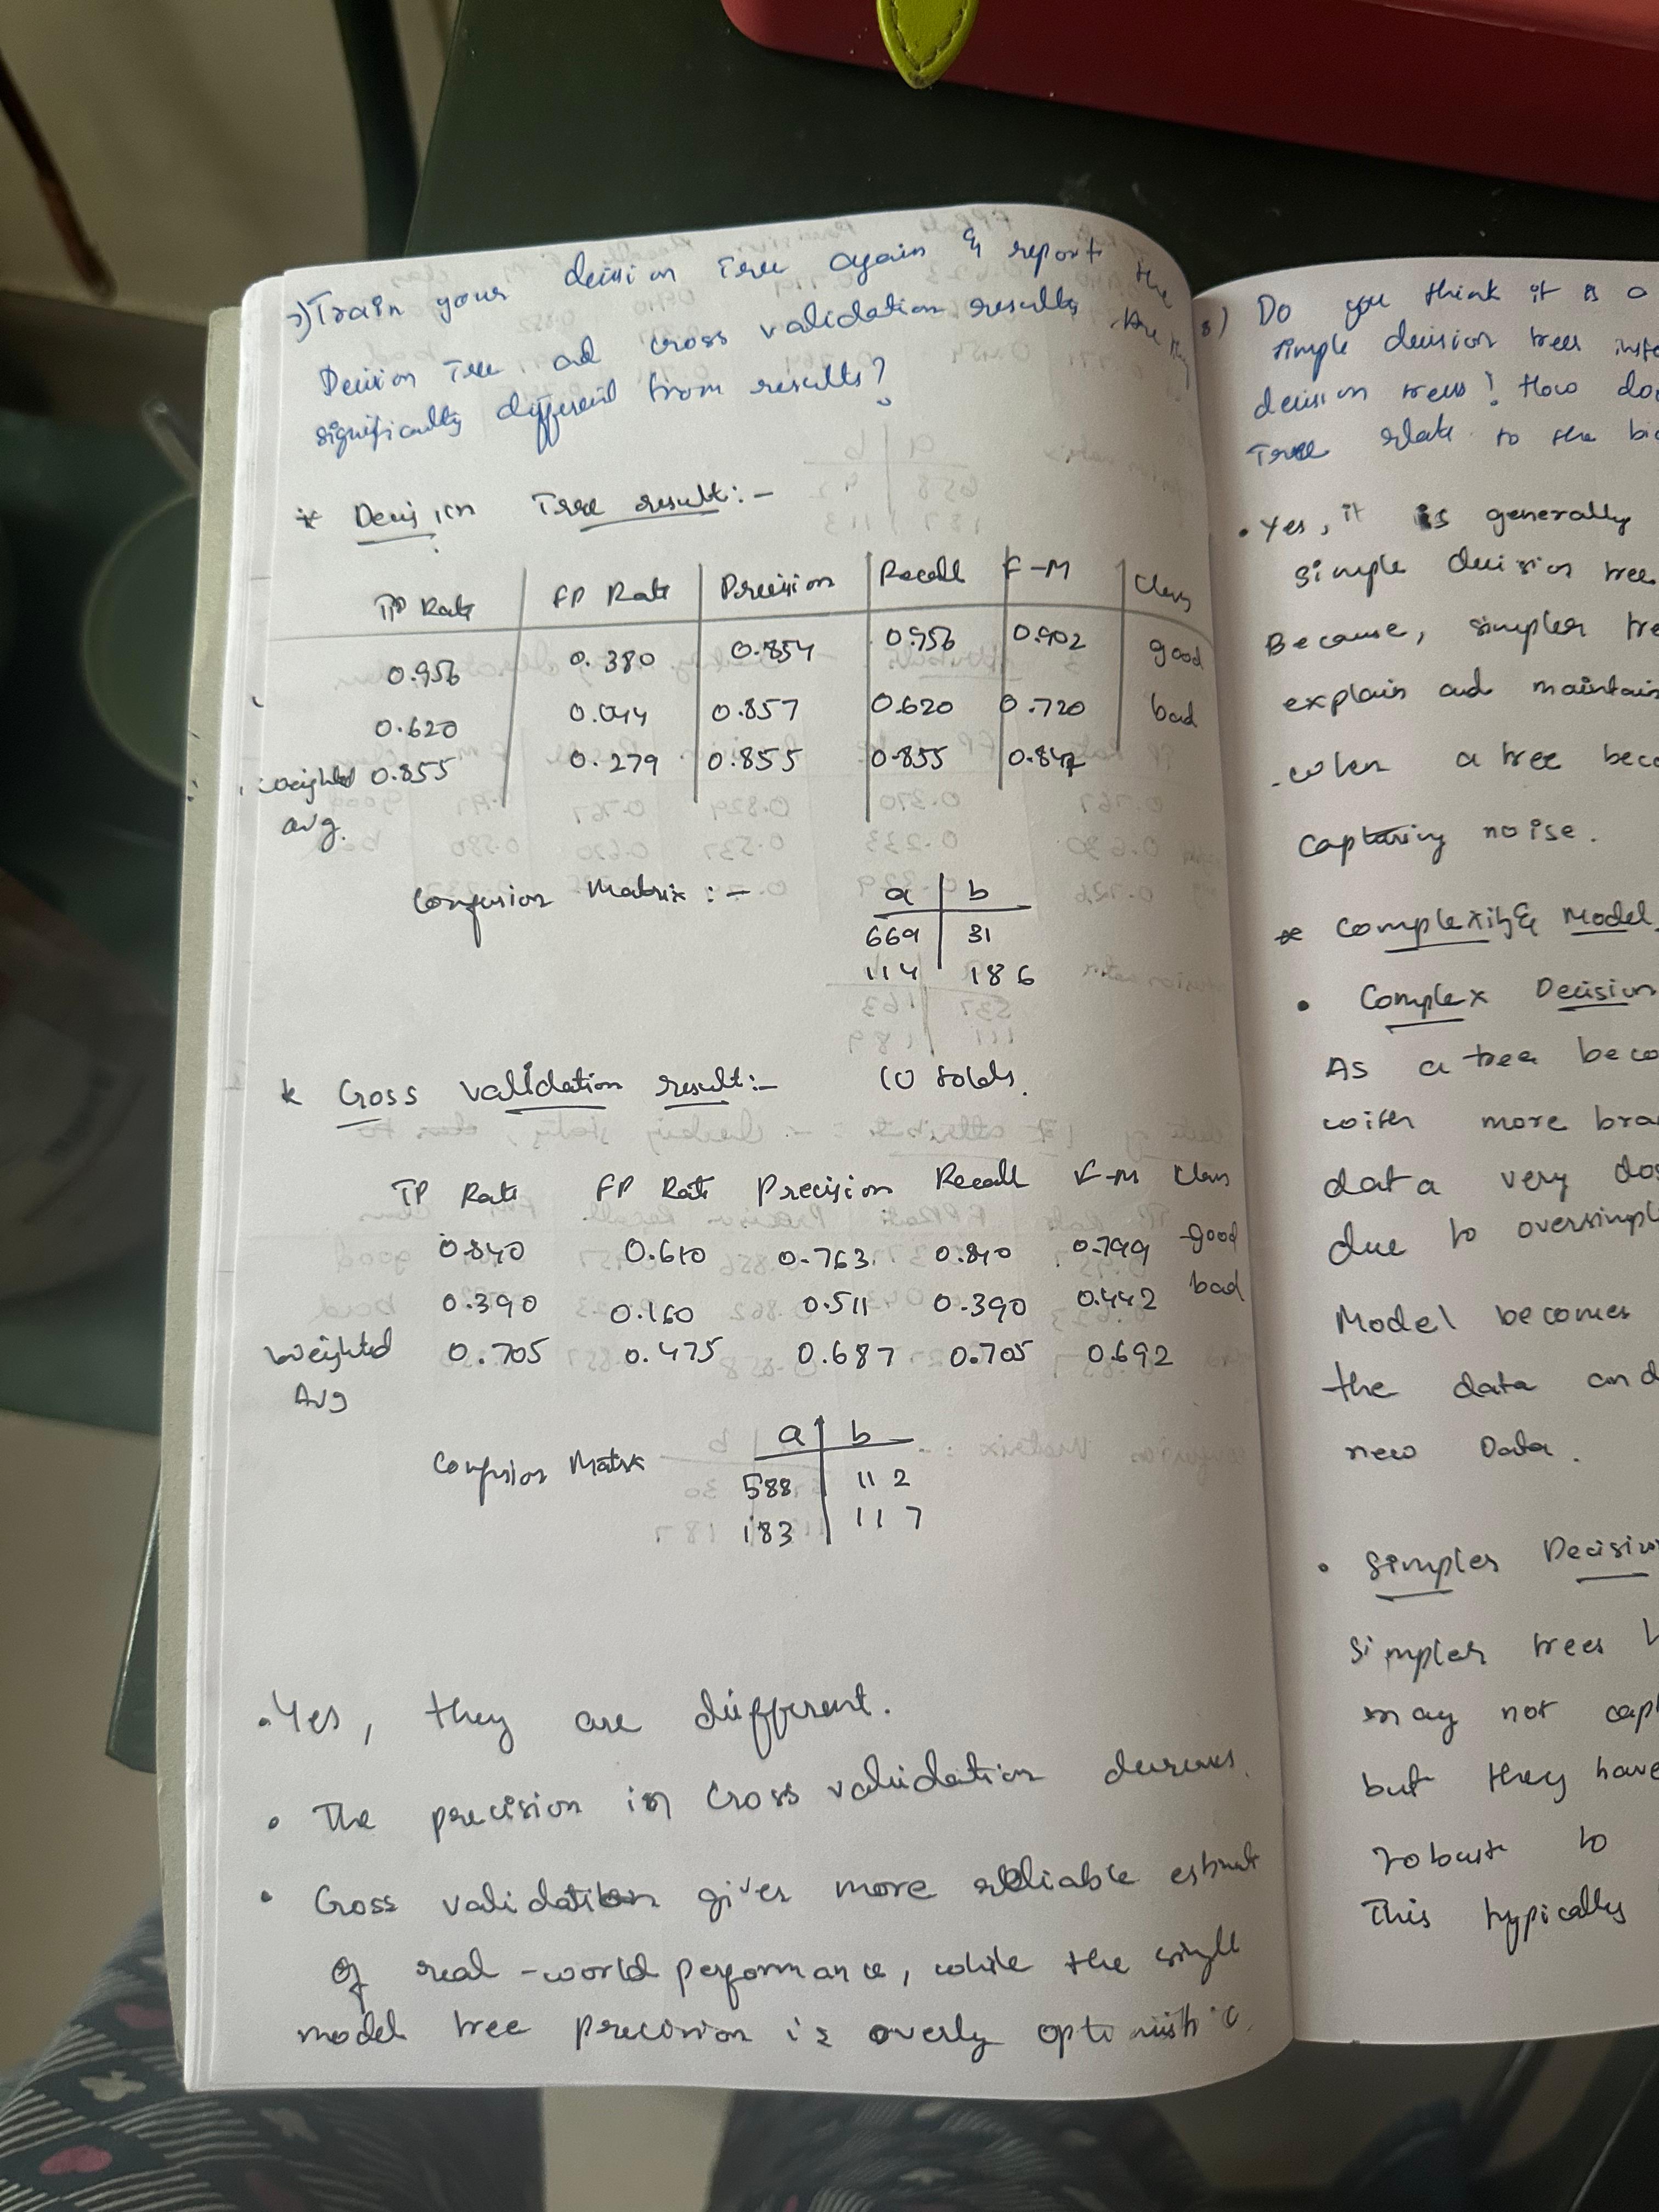 7) Train your decision Tree again & report the
Decision Tree and cross validation results. Are they
significantly different from results?
* Decision Tree result:-
TP Rate FP Rate Precision Recall F-M Class
0.956 0.380 0.854 0.956 0.902 good
0.620 0.044 0.857 0.620 0.720 bad
Weighted 0.855 0.279 0.855 0.855 0.847
avg.
Confusion Matrix :- a b
669 31
114 186
* Cross validation result:- 10 folds.
TP Rate FP Rate Precision Recall F-M Class
0.840 0.610 0.763 0.840 0.799 good
0.390 0.160 0.511 0.390 0.442 bad
Weighted 0.705 0.475 0.687 0.705 0.692
Avg
Confusion Matrix a b
588 112
183 117
• Yes, they are different.
• The precision in Cross validation decreases.
• Cross validation gives more reliable estimate
of real-world performance, while the single
model tree precision is overly optimistic.
8) Do you think it is a
simple decision trees inste
decision trees! How doe
Tree relate to the bia
• Yes, it is generally
simple decision tree
Because, simpler tre
explain and maintain
- when a tree beco
capturing noise.
* Complexity & Model
• Complex Decision
As a tree beco
with more bra
data very clos
due to oversimpl
Model becomes
the data and
new Data.
• Simpler Decision
Simpler trees h
may not capt
but they have
robust to
This typically